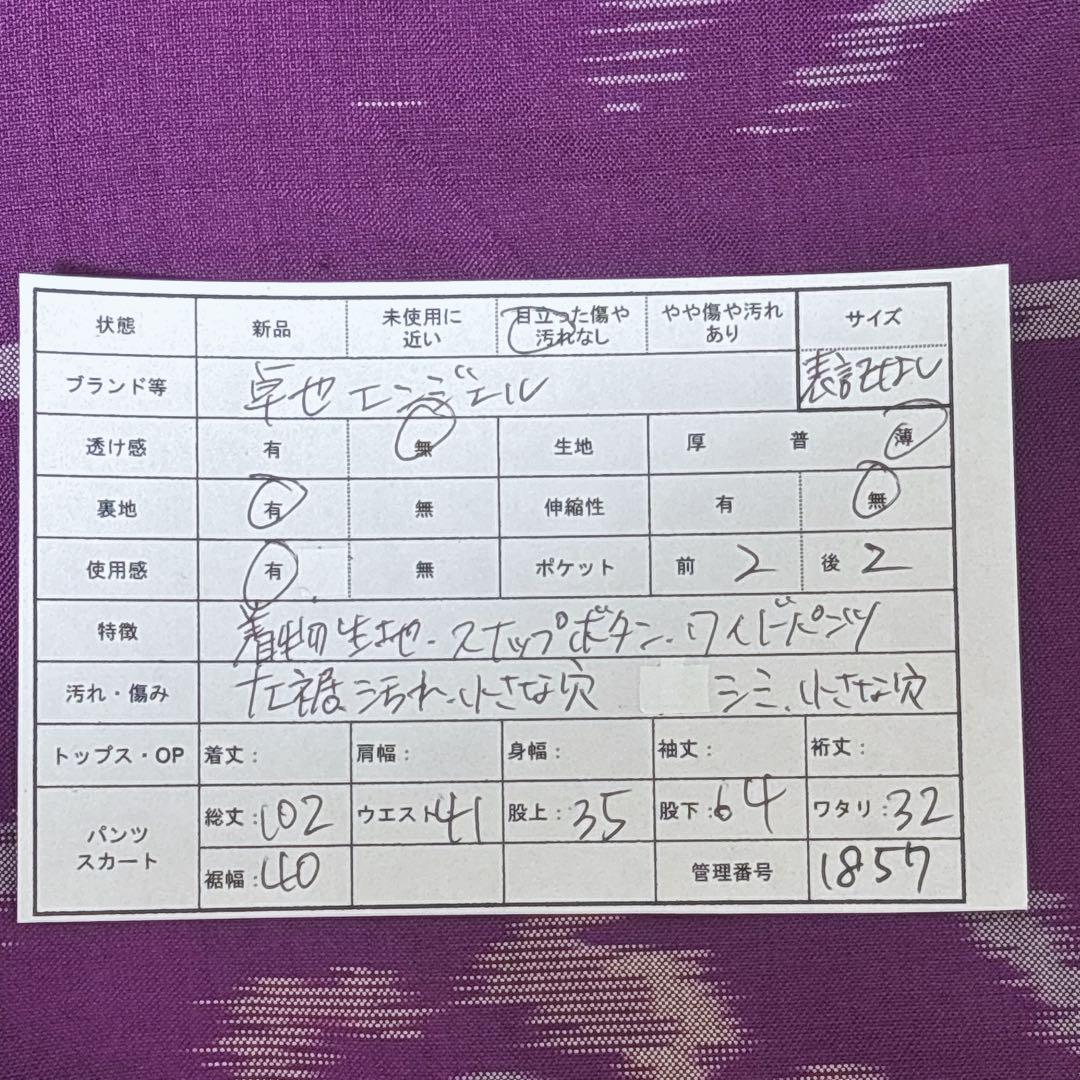 状態 新品 未使用に近い 目立った傷や汚れなし やや傷や汚れあり サイズ
ブランド等 卓也エンジェル 表記なし
透け感 有 無 生地 厚 普 薄
裏地 有 無 伸縮性 有 無
使用感 有 無 ポケット 前 2 後 2
特徴 着物生地・スナップボタン・ワイドパンツ
汚れ・傷み 左裾汚れ・小さな穴 シミ、小さな穴
トップス・OP 着丈: 肩幅: 身幅: 袖丈: 裄丈:
パンツ スカート 総丈:102 ウエスト41 股上:35 股下:64 ワタリ:32
裾幅:40 管理番号 1857